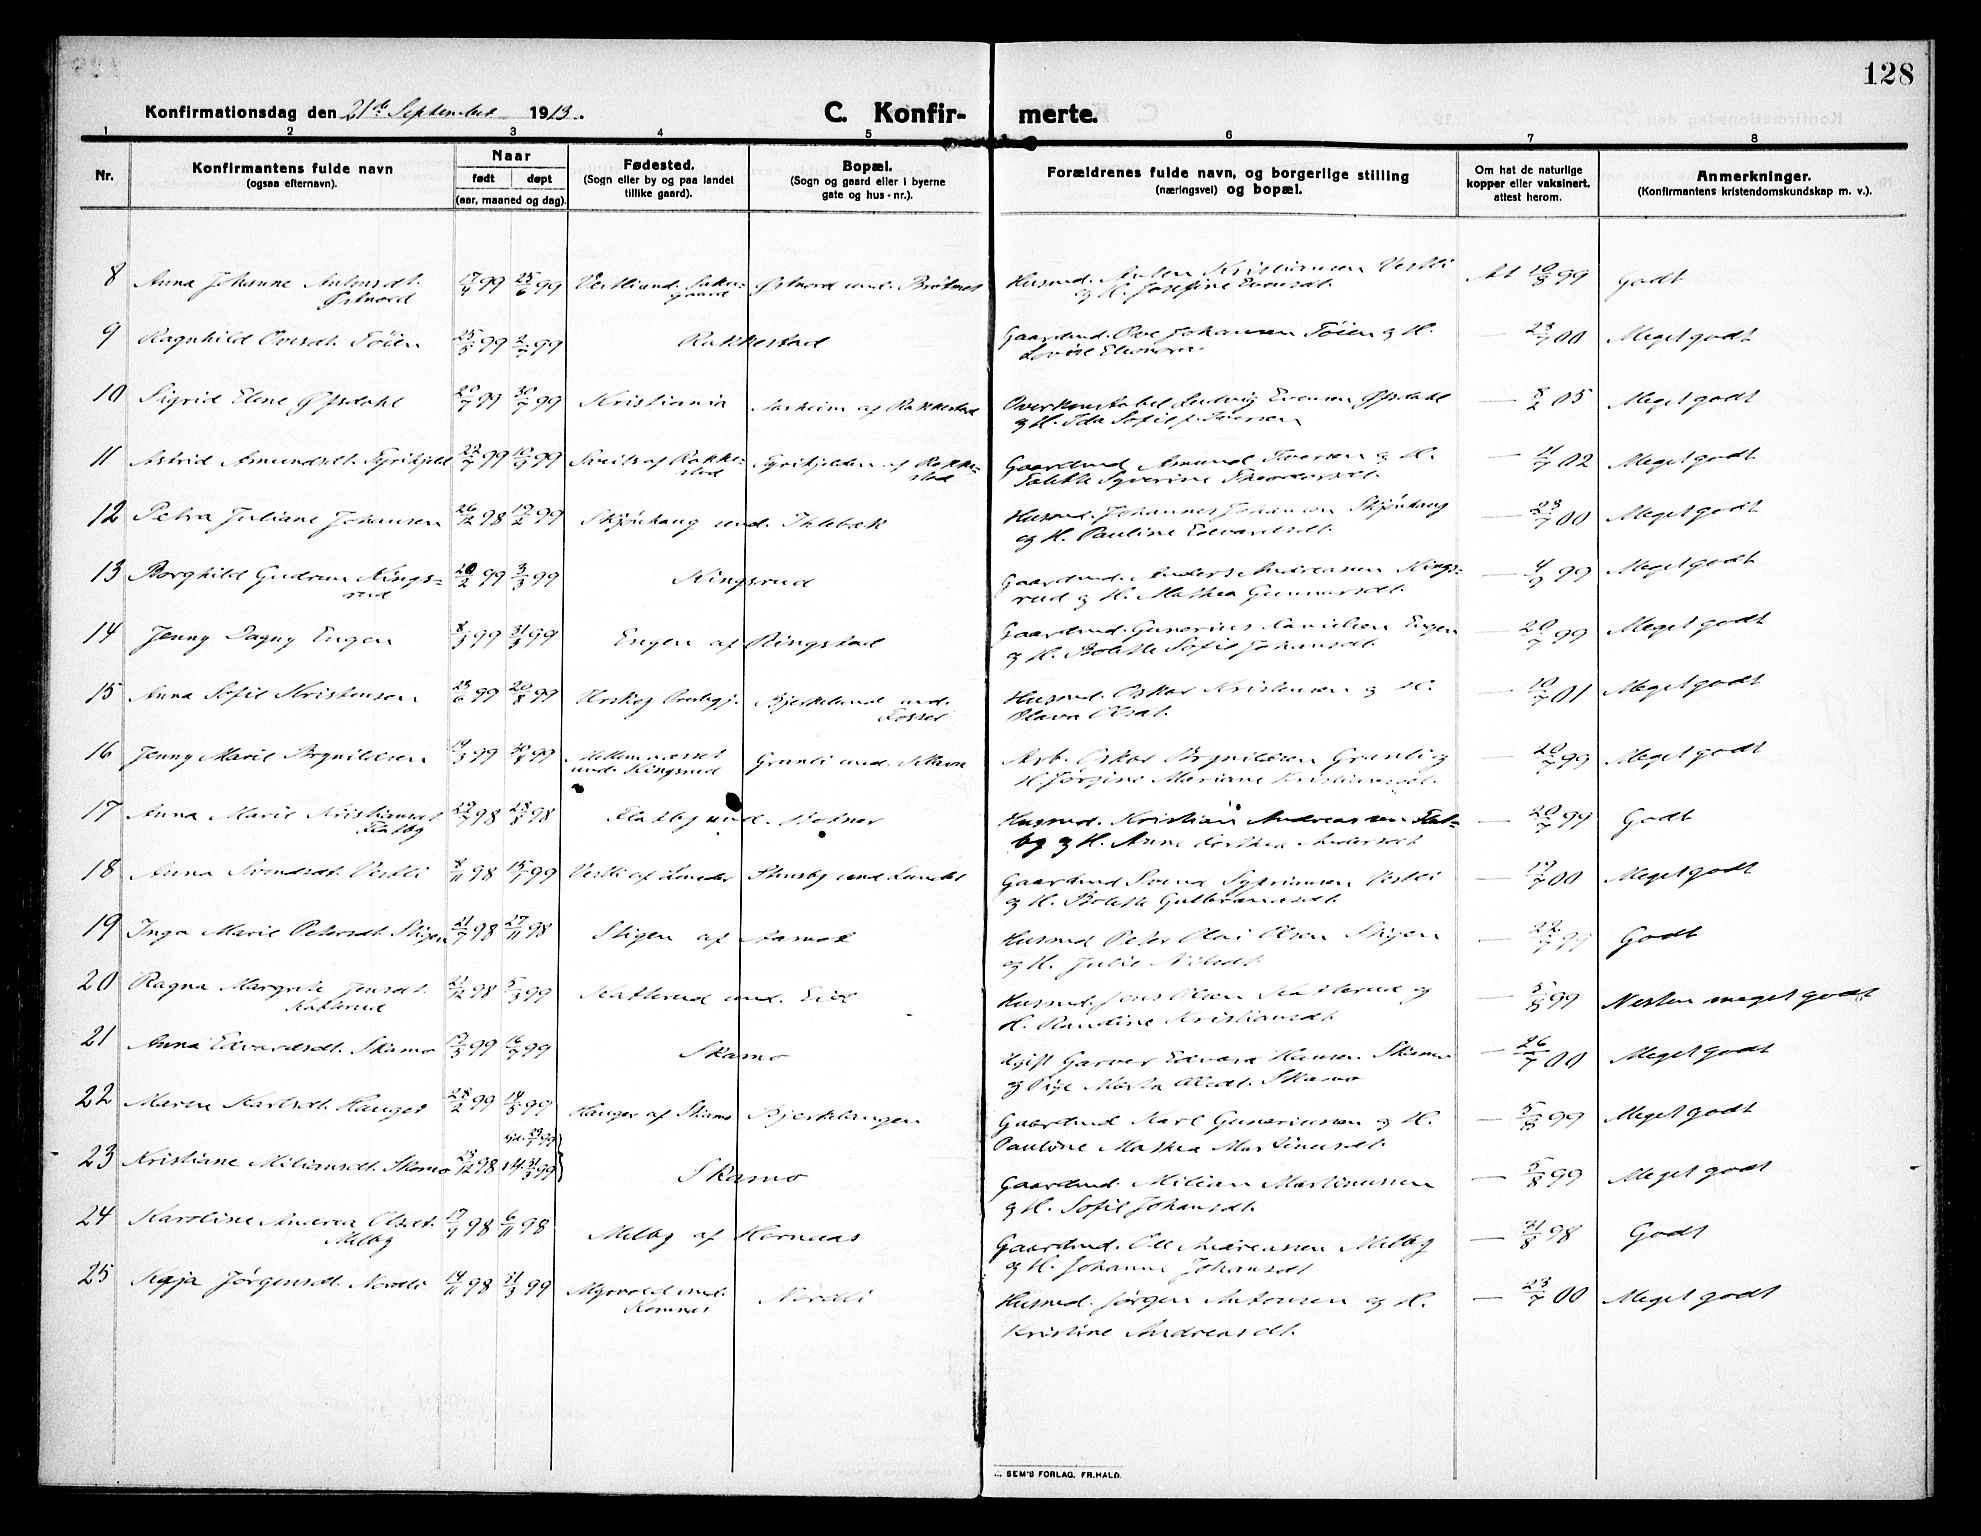 128
Konfirmationsdag den 21de September 1913.
C. Konfir- merte.
1 2 3 4 5 6 7 8
Nr.
Konfirmantens fulde navn
(ogsaa efternavn).
Naar
født døpt
(aar, maaned og dag).
Fødested.
(Sogn eller by og paa landet
tillike gaard).
Bopæl.
(Sogn og gaard eller i byerne
gate og hus-nr.).
Forældrenes fulde navn, og borgerlige stilling
(næringsvei) og bopæl.
Om hat de naturlige
kopper eller vaksinert,
attest herom.
Anmerkninger.
(Konfirmantens kristendomskundskap m. v.).
8 Anna Johanne Antonsdt. 17/4 99 25/6 99 Østnord und. Husmd. Anton Kristiansen Vestli At 10/8 99 Godt
Østnord og H. Josefine Evensdt.
9 Ragnhild Ovesdt. Töien 25/5 99 2/7 99 Rakkestad Gaardmd. Ove Johansen Töien og H. — 23/7 00 Meget godt
10 Sigrid Elene Øfsdahl 20/7 99 30/7 99 Kristiania Aasheim af Rakkestad Overkonstabel Ludvig Evensen Øfsdahl — 8/2 05 Meget godt
og H. Ida Sofie f. Iversen
11 Astrid Asmundsdt. Fyrikjeld 22/7 99 10/9 99 af Rakke- Fyrikjelden af Rakke- Gaardmd. Asmund Iversen og H. — 11/7 02 Meget godt
stad stad Talette Syverine Theodorsdt.
12 Petra Juliane Johansen 26/12 98 19/2 99 Skjönhaug und. Ihlebæk Husmd. Johannes Johansen Skjönhaug — 23/7 00 Meget godt
og H. Pauline Edvardsdt.
13 Borghild Gudrun Kings- 20/2 99 3/3 99 Kingsrud Gaardmd. Anders Andreassen Kings- — 4/9 99 Meget godt
rud rud og H. Mathea Gunnarsdt.
14 Jenny Dagny Engen 8/3 99 31/3 99 Engen af Ringstad Gaardmd. Gunerius Danielsen Engen — 20/7 99 Meget godt
og H. Bolette Sofie Johansdt.
15 Anna Sofie Kristensen 23/6 99 20/8 99 Bjerkelund und. Husmd. Oskar Kristensen og H. — 10/7 01 Meget godt
Fosser Olava Olsdt.
16 Jenny Marie Brynildsen 14/3 99 30/4 99 Granli und. Arb. Oskar Brynildsen Granli og — 20/7 99 Meget godt
und. Kingsrud H. Jørgine Mariane Kristiansdt.
17 Anna Marie Kristiansdt. 98 28/8 98 Flatby und. Botner Husmd. Kristian Andreassen Flat- — 20/7 99 Godt
Flatby by og H. Anne Dorthea Andersdt
18 Anna Svendsdt. Vestli 8/11 98 15/1 99 Vestli af Lunder Stensby und Lunder Gaardmd Svend Sypriansen Vestli — 19/7 00 Meget godt
og H. Bolette Gulbrandsdt.
19 Inga Marie Petersdt. Stigen 21/7 98 27/11 98 Stigen af Aamot Husmd Peter Olai Olsen Stigen — 22/7 99 Godt
og H. Julie Nilsdt.
20 Ragna Margrete Jensdt. 21/12 98 5/3 99 Katterud und. Eid Husmd. Jens Olsen Katterud og — 5/8 99 Nesten meget godt
Katterud H. Randine Kristiansdt.
21 Anna Edvardsdt. Skamo 17/5 99 16/7 99 Skamo Ugift Garver Edvard Hansen Skamo — 26/7 00 Meget godt
og Pige Marta Olsdt. Skamo
22 Maren Karlsdt. Hanger 28/2 99 14/5 99 Hanger af Skamo Bjerklangen Gaardmd Karl Gunariussen og H. — 5/8 99 Meget godt
Pauline Mathea Martinusdt.
23 Kristiane Miliansdt. Skamo 23/12 98 31/3 99 Skamo Gaardmd. Milian Martinussen — 5/8 99 Meget godt
og H. Sofie Johansdt.
24 Karoline Andrea Olsdt. 17/9 98 6/11 98 Melby af Hornæs Gaardmd. Ole Andreassen Melby — 31/8 98 Godt
Melby og H. Johanne Johansdt
25 Kaja Jørgensdt. Nordli 14/11 98 31/3 99 Myrvold und. Nordli Husmd. Jørgen Antonsen og H. — 23/7 00 Meget godt
Komnes Kristine Andreasdt.
SEM'S FORLAG, FR.HALD.